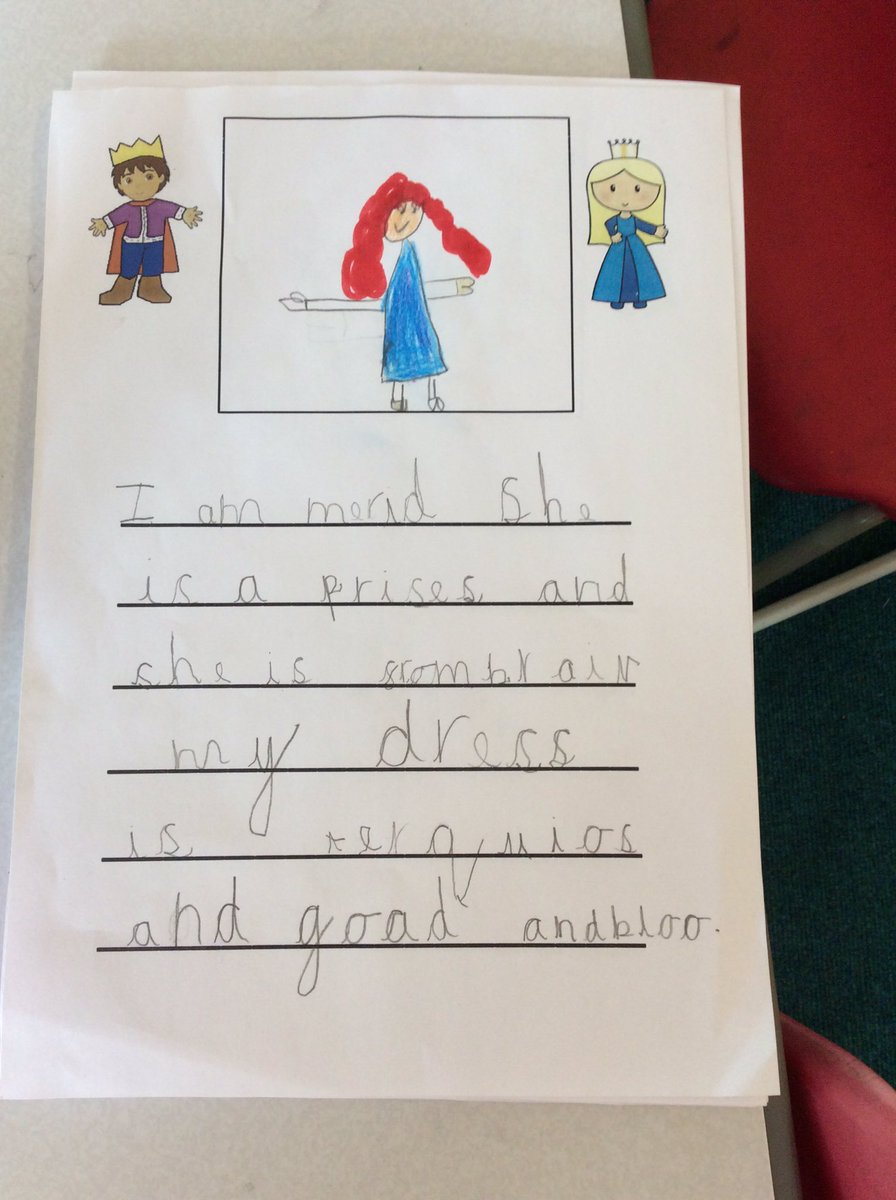 I am merid she
is a prises and
she is srombrain
my dress
is rerquios
and goad andbloo.